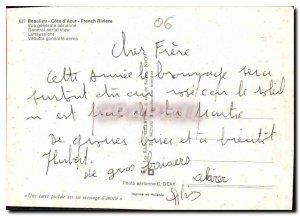 607 Beaulieu - Côte d'Azur - French Riviera
Vue générale aérienne
General aerial view
Luftansicht
Veduta generale aerea
06
Cher Frère
Cette année bronzage sera
surtout du au rosé car le soleil
n est pas de la partie
De grosses bises et à bientôt
Hubert.
de gros baisers
Photo aérienne C. DEAY
Imprimé en Hollande
«Une carte postale est un message d'amitié»